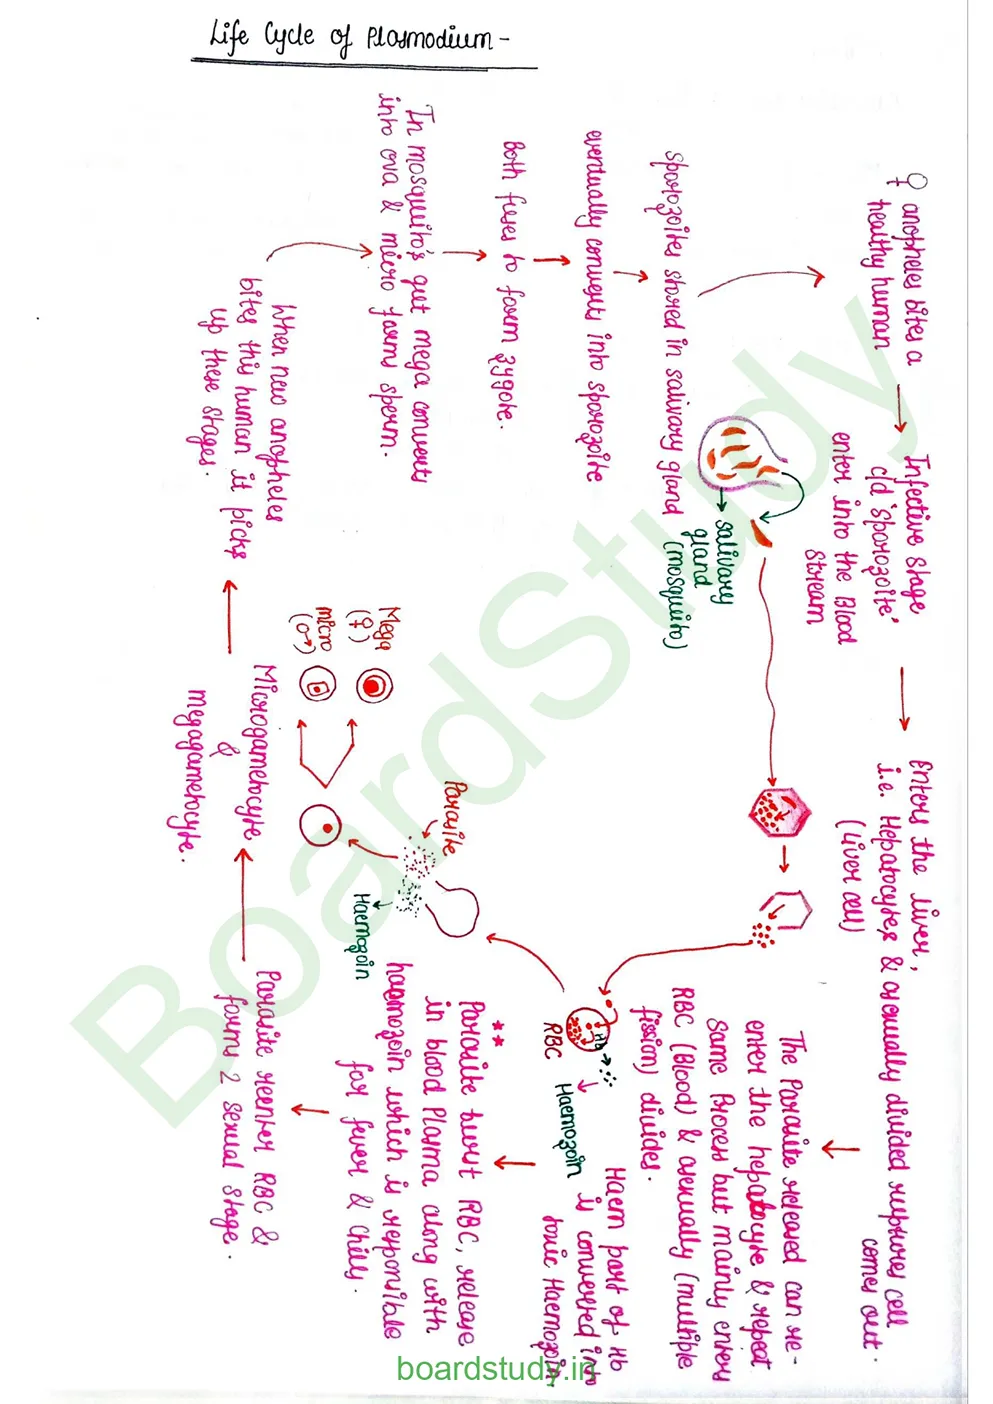 Life Cycle of Plasmodium -
♀ anopheles bites a
healthy human
Infective stage
c/d 'sporozoite'
enter into the Blood
stream
Enters the liver,
i.e. Hepatocytes & asexually divided ruptures cell
(liver cell)
comes out.
The Parasite released can re-
enter the hepatocyte & repeat
same Process but mainly enters
RBC (Blood) & asexually (multiple
fission) divides.
Haem part of Hb
is converted into
toxic Haemozoin.
**
Parasite burst RBC, release
in blood Plasma along with
haemozoin which is responsible
for fever & chills.
Parasite reenter RBC &
forms 2 sexual stage.
Microgametocyte
&
megagametocyte.
When new anopheles
bites this human it picks
up these stages.
In mosquito's gut mega convert
into ova & micro forms sperm.
Both fuses to form zygote.
eventually converts into sporozoite
sporozoites stored in salivary gland
salivary
gland
(mosquito)
Hb
RBC
Haemozoin
Parasite
Haemozoin
Mega
(♀)
micro
(♂)
BoardStudy
boardstudy.in